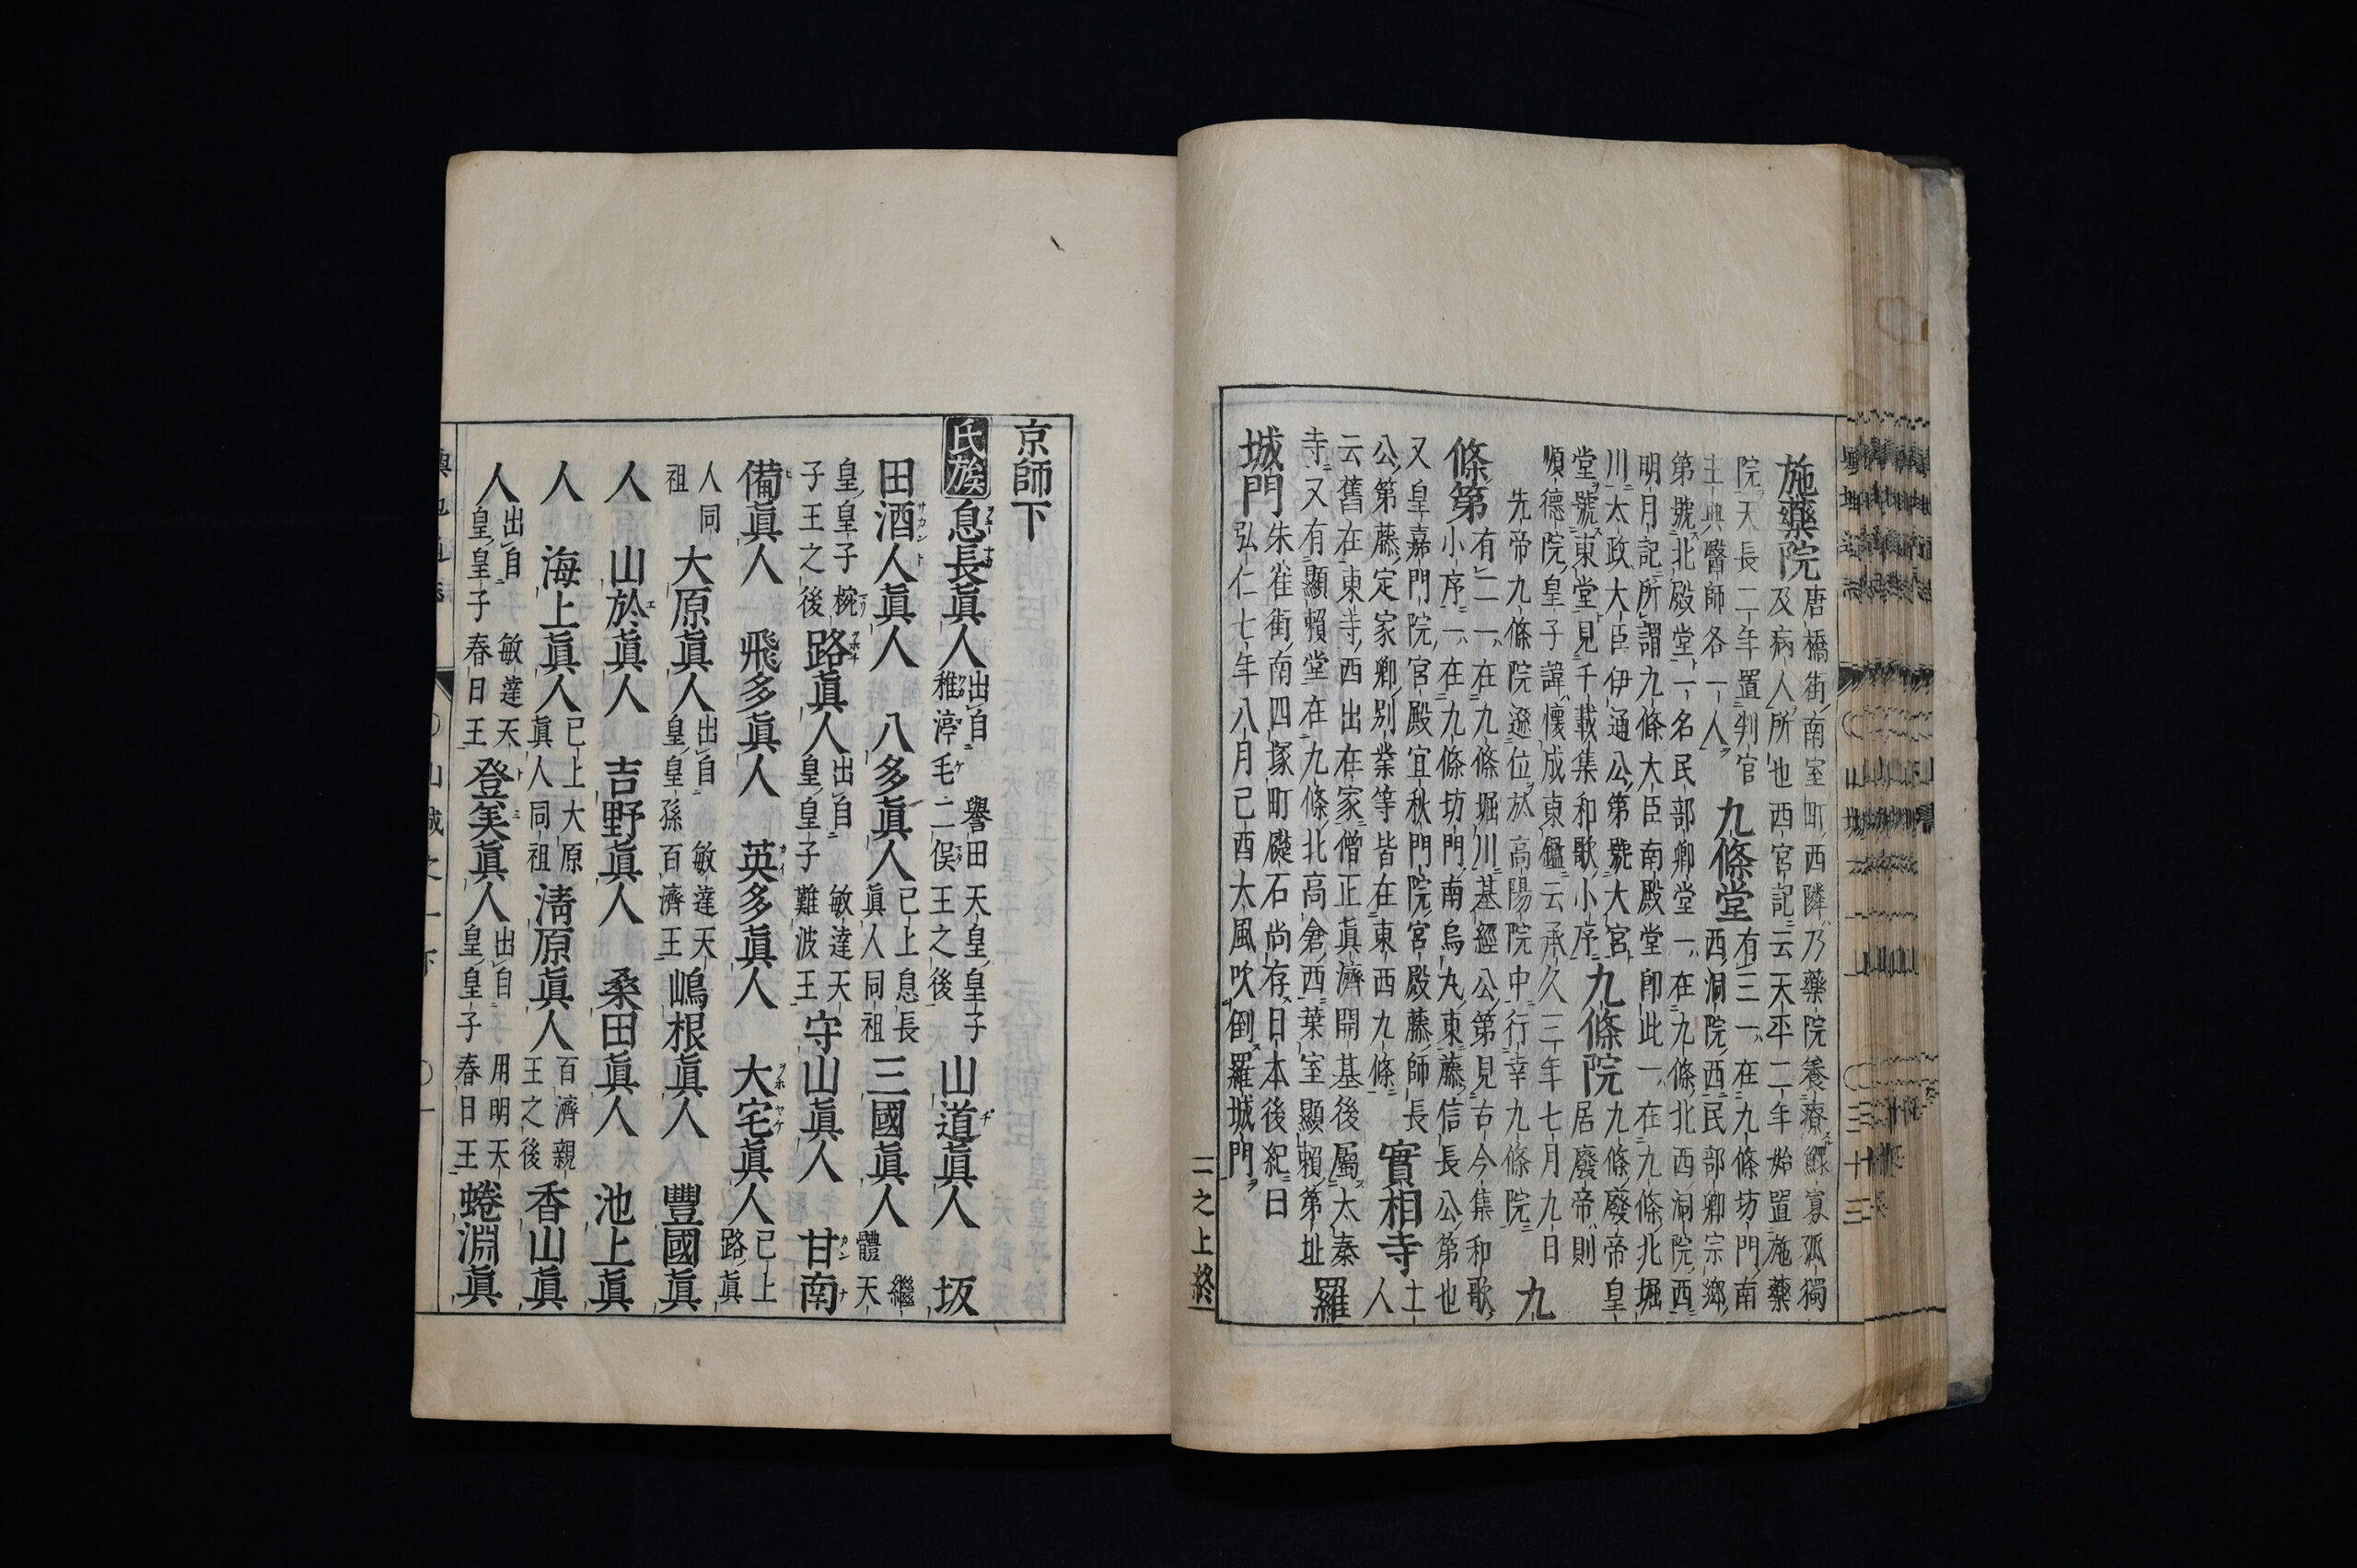 施藥院唐橋街南室町西隣乃藥院養療鰥寡孤獨
及病人所也西宮記云天平二年始置施藥
院天長二年置判官
主典醫師各一人
九條堂有三一在九條坊門南
西洞院西民部卿宗鄕
第號北殿堂一名民部卿堂一在九條北西洞院西
明月記所謂九條大臣南殿堂卽此一在九條北堀
川太政大臣伊通公第號大宮
堂號東堂見千載集和歌小序
九條院九條廢帝皇
居廢帝則
順德院皇子諱懷成東鑑云承久三年七月九日
先帝九條院遜位於高陽院中行幸九條院
九
條第有二一在九條堀川基經公第見古今集和歌
小序一在九條坊門南烏丸東藤信長公第也
又皇嘉門院宮殿宜秋門院宮殿藤師長
公第藤定家卿別業等皆在東西九條
實相寺土
人
云舊在東寺西出在家僧正眞濟開基後屬太秦
寺又有顯賴堂在九條北高倉西葉室顯賴第址
羅
城門朱雀街南四塚町礎石尚存日本後紀曰
弘仁七年八月己酉大風吹倒羅城門
二之上終
京師下
氏族 息長眞人出自 譽田天皇皇子稚渟毛二俣王之後 山道眞人 坂
田酒人眞人 八多眞人已上息長眞人同祖 三國眞人 繼體天
皇皇子椀子王之後 路眞人出自 敏達天皇皇子難波王 守山眞人 甘南
備眞人 飛多眞人 英多眞人 大宅眞人已上路眞
人同祖 大原眞人出自 敏達天皇皇孫百濟王 嶋根眞人 豐國眞
人 山於眞人 吉野眞人 桑田眞人 池上眞
人 海上眞人已上大原眞人同祖 淸原眞人百濟親王之後 香山眞
人出自 敏達天皇皇子春日王 登美眞人出自 用明天皇皇子春日王 蜷淵眞